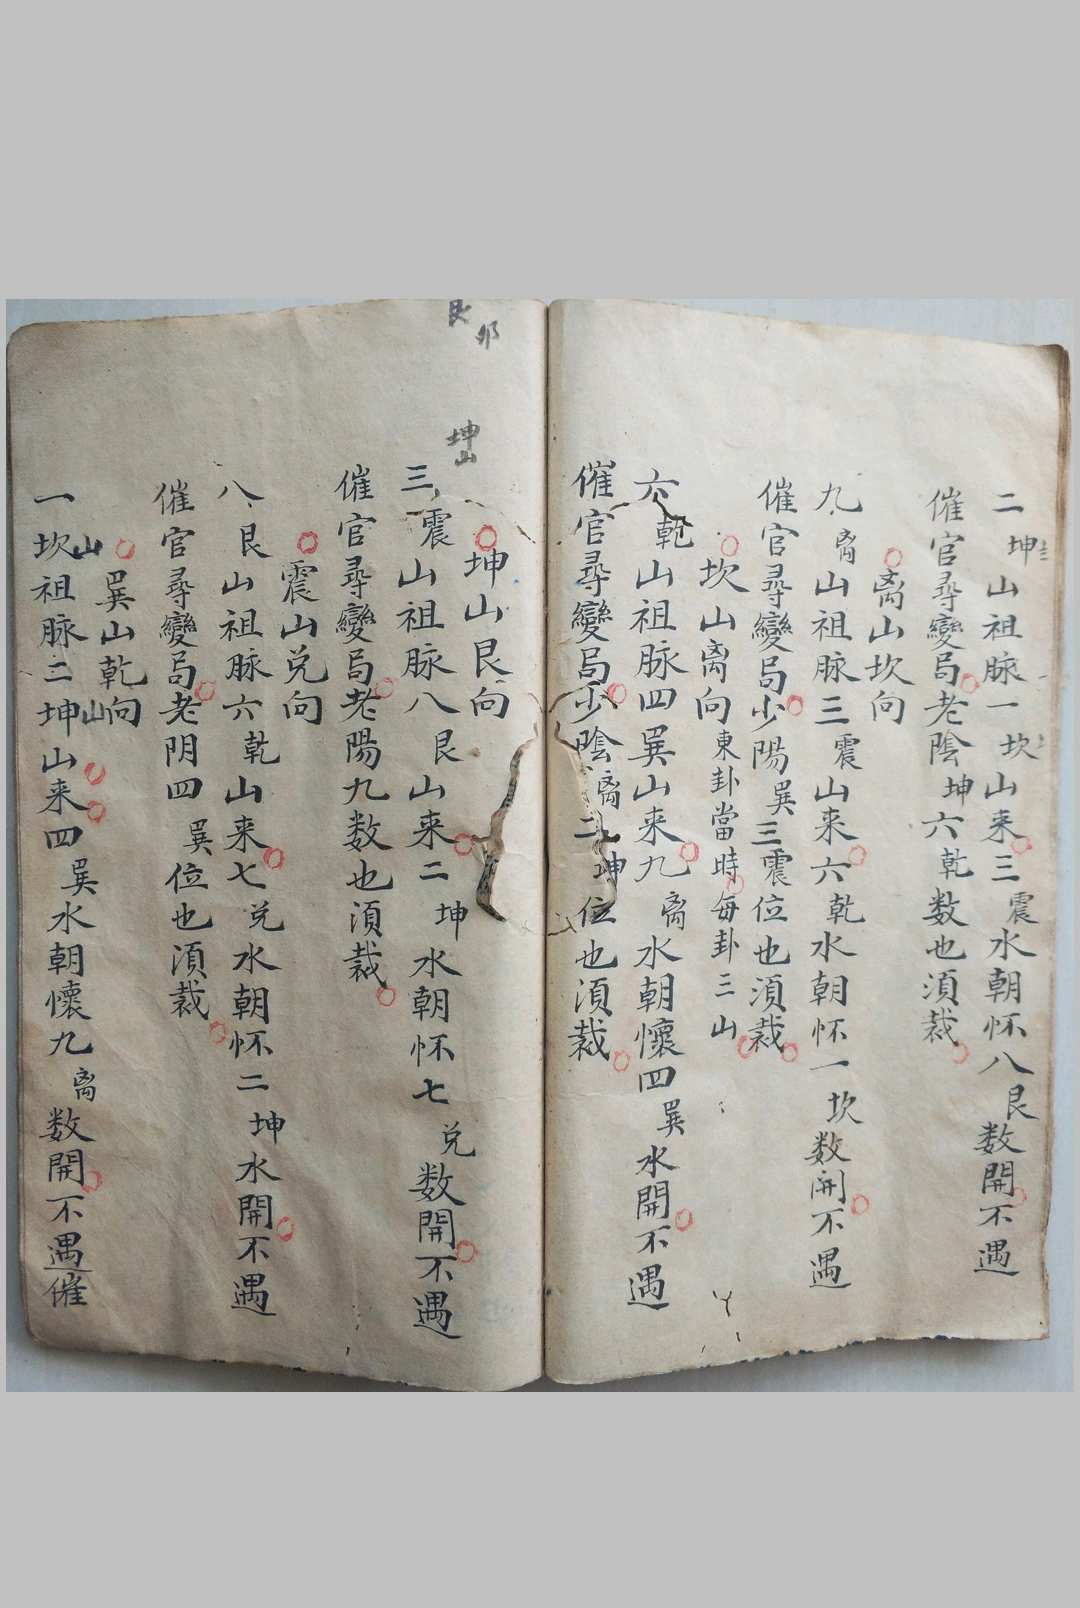 二坤山祖脉一坎山来三震水朝怀八艮数開不遇
催官尋變局老陰坤六乾数也須裁
离山坎向
九离山祖脉三震山来六乾水朝怀一坎数開不遇
催官尋變局少陽巽三震位也須裁
坎山离向東卦當時每卦三山
六乾山祖脉四巽山来九离水朝懷四巽水開不遇
催官尋變局少陰离二坤位也須裁
艮
坤山
坤山艮向
三震山祖脉八艮山来二坤水朝怀七兑数開不遇
催官尋變局老陽九数也須裁
震山兑向
八艮山祖脉六乾山来七兑水朝怀二坤水開不遇
催官尋變局老阴四巽位也須裁
巽山乾向
一坎山祖脉二坤山山来四巽水朝懷九离数開不遇催